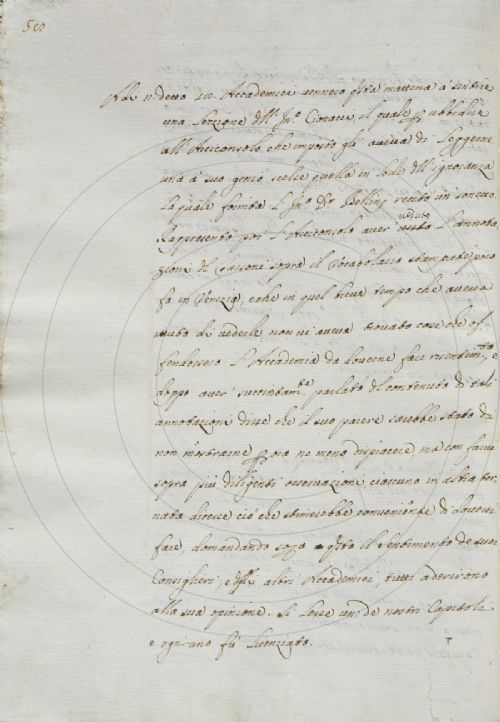 580
Adì 11. detto 20. Accademici vennero q.sta mattina à sentire
una Lezione dell' Sig.r Cionacci il quale p. ubbidire
all' Arciconsolo che imposto gli aveva di Leggerne
una à suo genio scelse quella in lode dell' ignoranza
la quale fornita L' Bellini recitò un sonetto
Rappresentò poi L'Arciconsolo aver veduto L'annota
zioni del sopra il Vocabolario stampate poco
fa in Venezia, e che in quel breve tempo che aveva
avuto di vederle non vi aveva trovato cose che of
fendessero L'Accademia da doverne fare risentim.to, e
doppo aver succintam.te parlato del contenuto di tali
annotazioni disse che il suo parere sarebbe stato di
non mostrarne p. ora ne meno dispiacere ma con farne
sopra più diligenti osservazioni ciascuno in altra tor
nata dicesse ciò che stimerebbe conveniente di doversi
fare, domandando sopra q.sto il sentimento de suoi
Consiglieri, e degl' altri Accademici, tutti aderirono
alla sua opinione. Si lesse uno de nostri Capitoli
e ogni uno fù Licenziato.